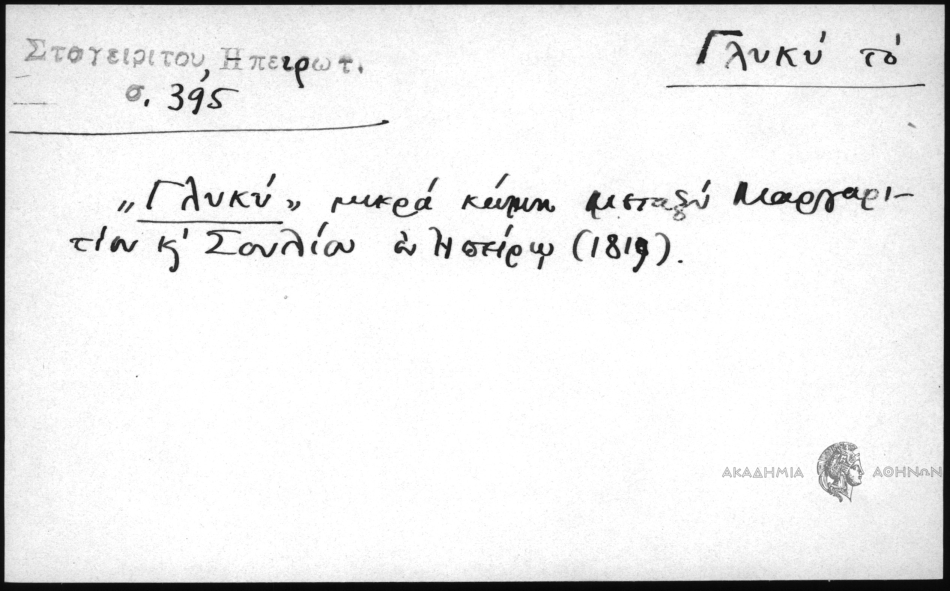 Σταγειρίτου, Ηπειρωτ.
σ. 395
Γλυκύ τό
„Γλυκύ„ μικρά κώμη μεταξύ Μαργαρι-
τίου κ' Σουλίου ἐν Ηπείρῳ (1819).
ΑΚΑΔΗΜΙΑ ΑΘΗΝΩΝ